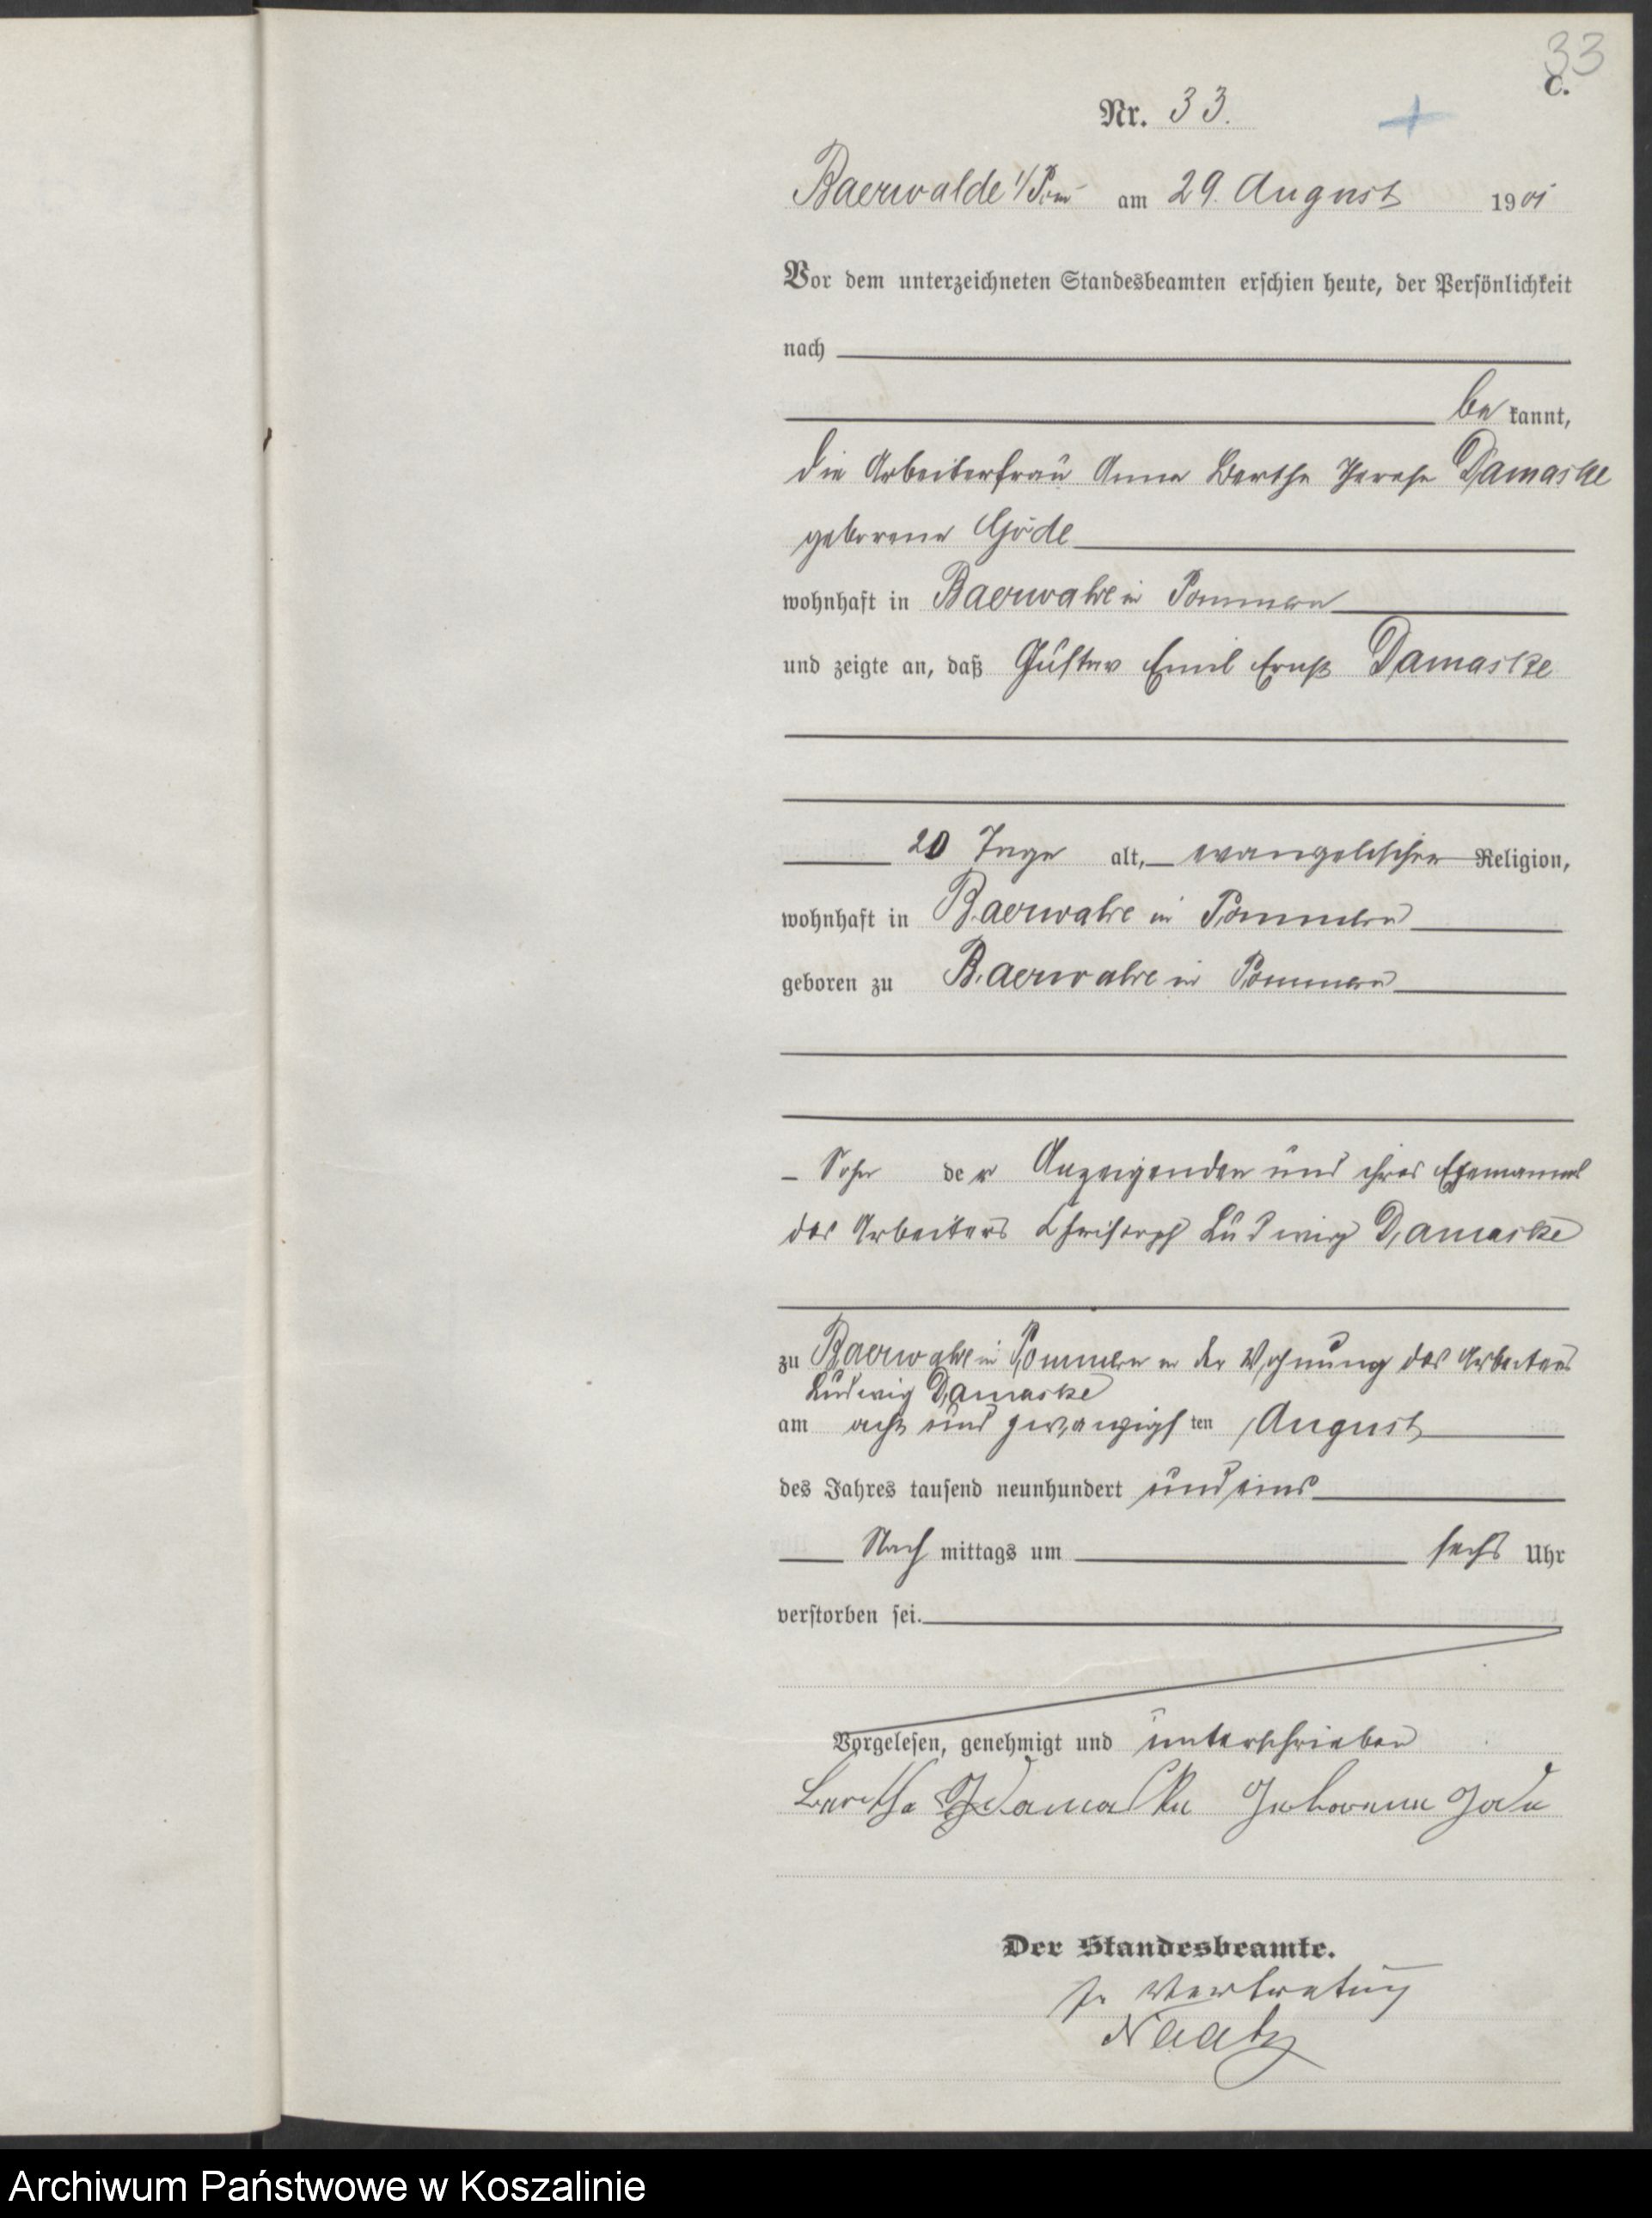 33
C.
Nr. 33.
Baerwalde i/Pom am 29. August 1901
Vor dem unterzeichneten Standesbeamten erschien heute, der Persönlichkeit
nach
be kannt,
die Arbeiterfrau Anna Bertha Damaske
geborene Göde
wohnhaft in Baerwalde in Pommern
und zeigte an, daß Gustav Emil Ernst Damaske
20 Tage alt, evangelischer Religion,
wohnhaft in Baerwalde in Pommern
geboren zu Baerwalde in Pommern
Sohn der Anzeigenden und ihres Ehemannes
des Arbeiters Christoph Ludwig Damaske
zu Baerwalde in Pommern in der Wohnung des Arbeiters
Ludwig Damaske
am acht und zwanzigsten August
des Jahres tausend neunhundert und eins
Nach mittags um sechs Uhr
verstorben sei.
Vorgelesen, genehmigt und unterschrieben
Bertha Damaske geborene Göde
Der Standesbeamte.
In Vertretung
Naatz
Archiwum Państwowe w Koszalinie